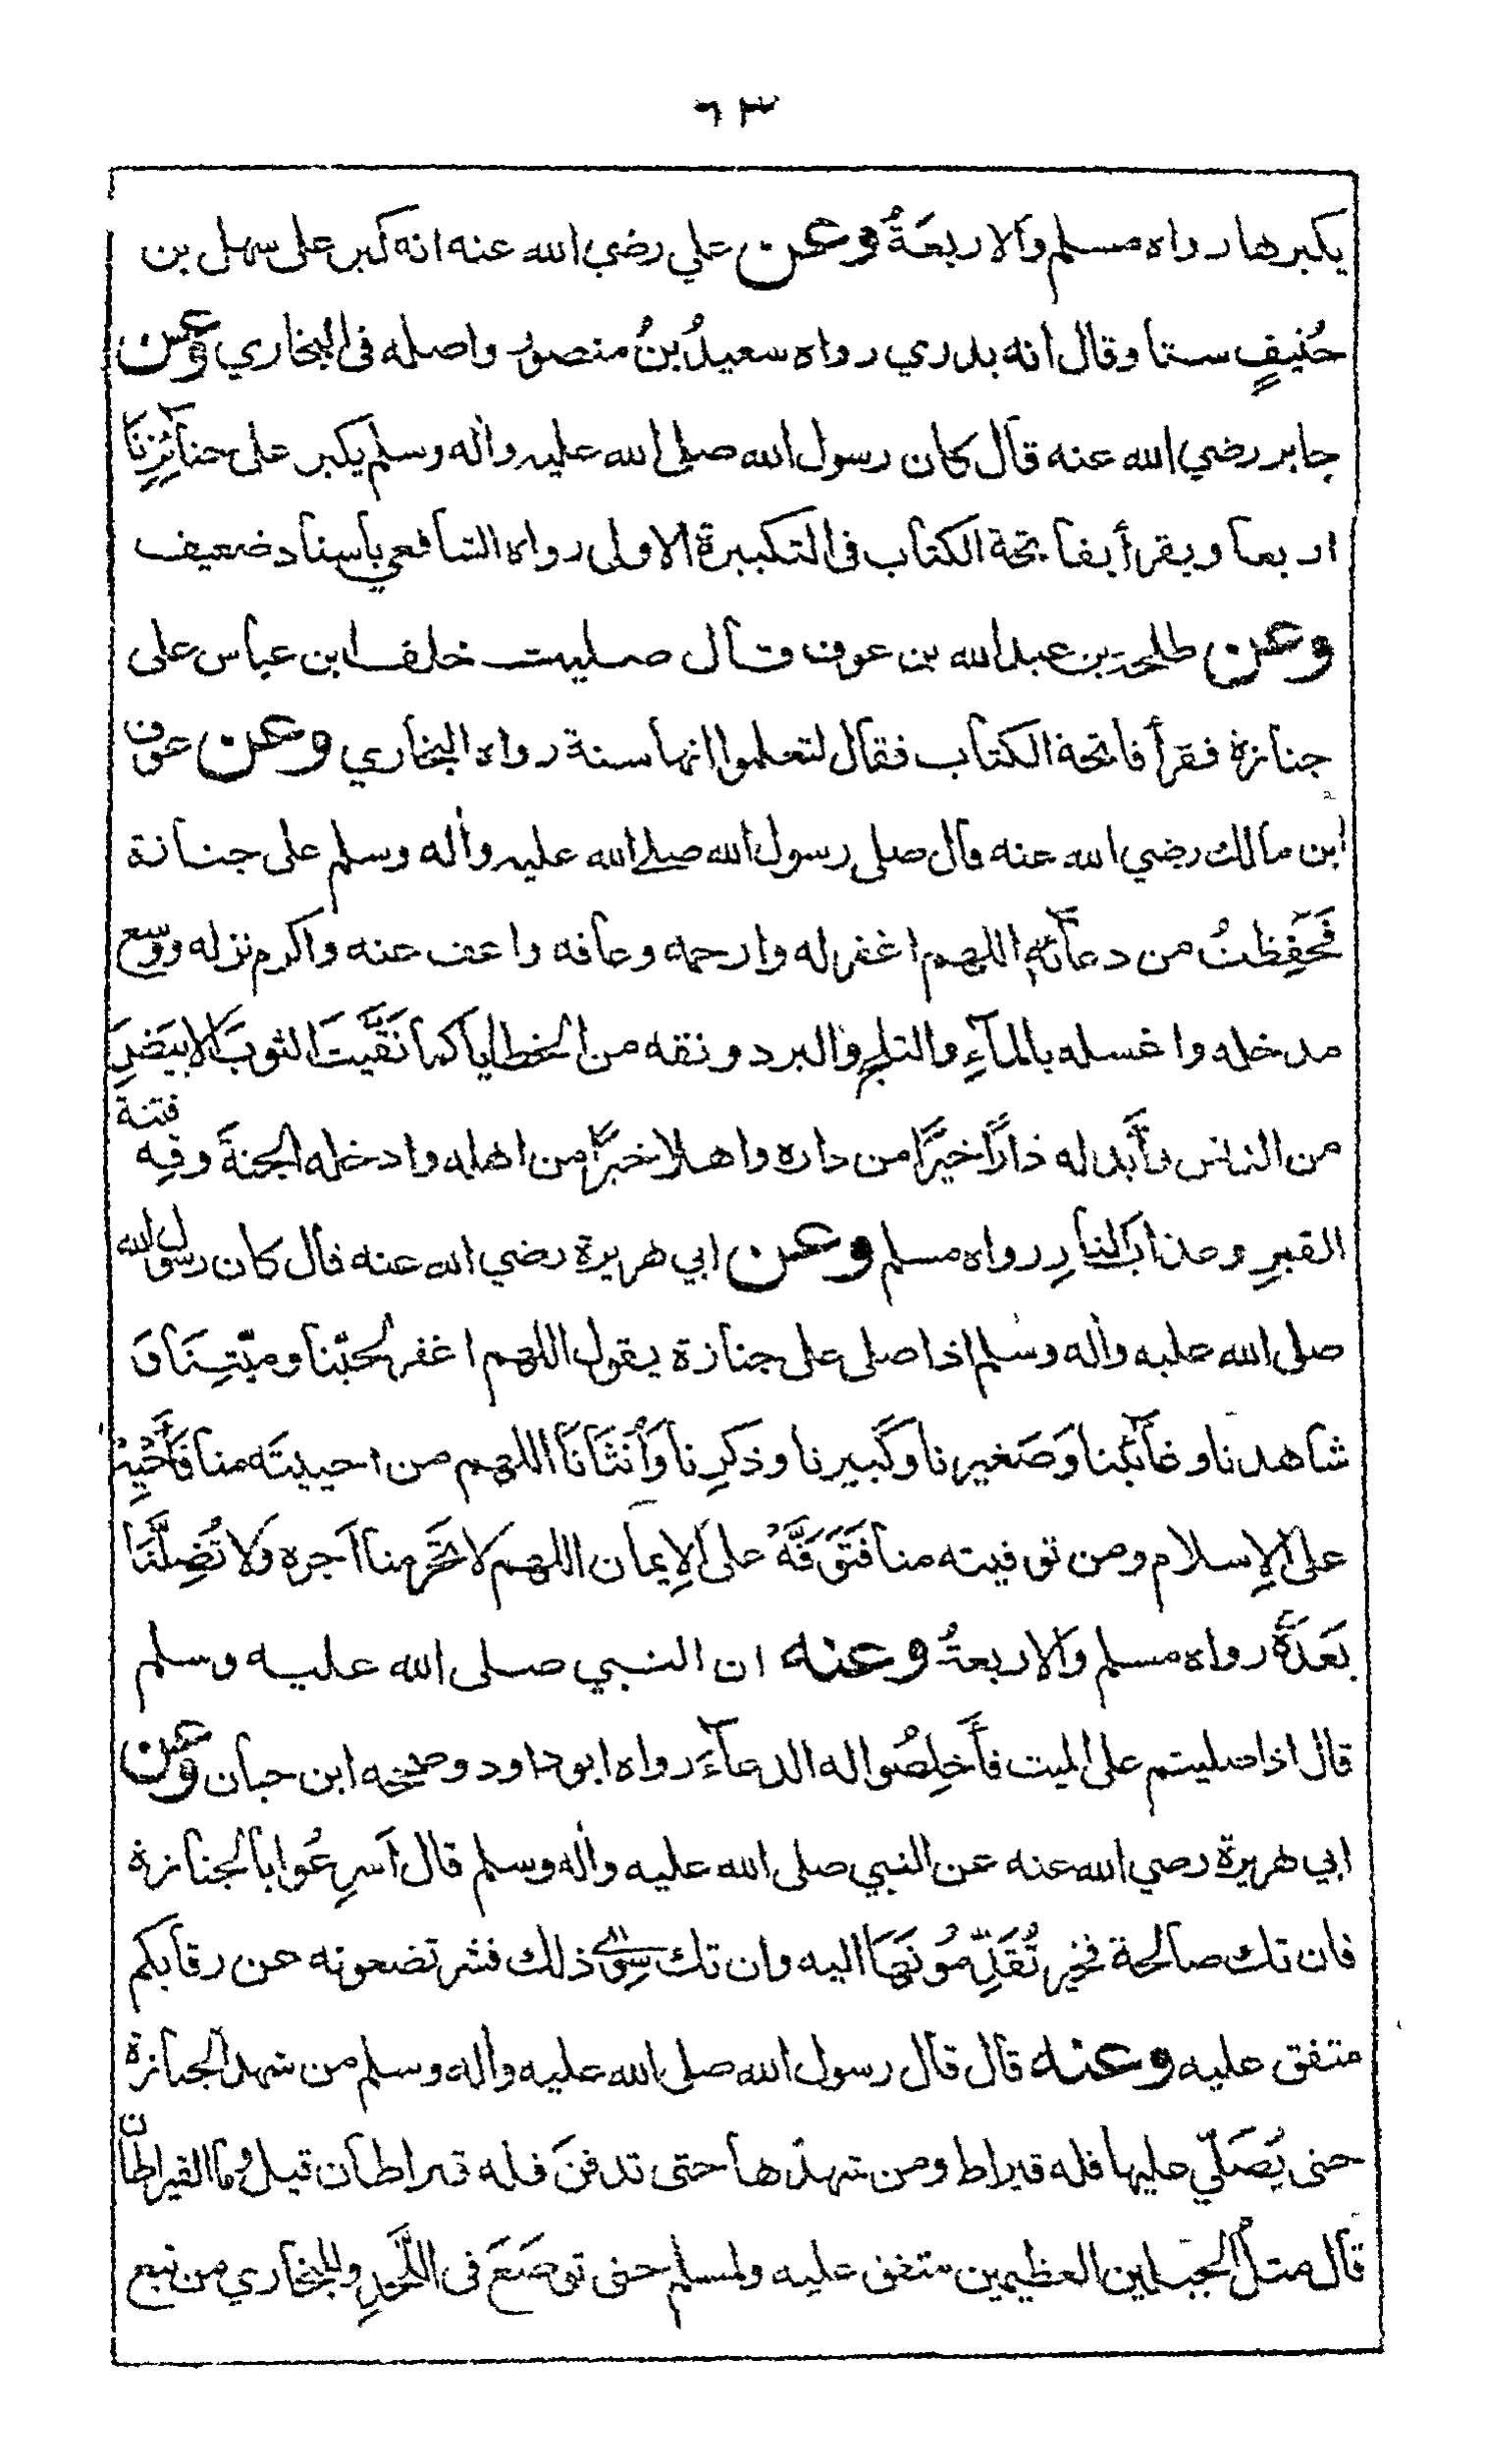 ٦٣
يكبرها رواه مسلم والاربعةُ وعن علي رضي الله عنه انه كبر على سهل بن
حُنيفٍ ستا وقال انه بدري رواه سعيدُ بنُ منصور واصله فى البخاري وعن
جابر رضي الله عنه قال كان رسول الله صلى الله عليه واٰله وسلم يكبر على جنائِزِنَا
اربعا ويقرأ بفاتحة الكتاب فى التكبيرة الاولى رواه الشافعي باسناد ضعيف
وعن طلحة بن عبد الله بن عوف قال صليت خلف ابن عباس على
جنازة فقرأ فاتحة الكتاب فقال لتعلموا انها سنة رواه البخاري وعن عوف
ابن مالك رضي الله عنه قال صلى رسول الله صلى الله عليه واٰله وسلم على جنازة
فَحَفِظتُ من دعآئه اللهم اغفر له وارحمه وعافه واعف عنه واكرم نزله ووسع
مدخله واغسله بالمآءِ والثلجِ والبرد ونقه من الخطايا كما نَقَّيتَ الثوبَ الابيَضَ
من الدنس وأَبدله دارًا خيرًا من داره واهلا خيرًا من اهله وادخله الجنةَ وقِه فتنة
القبرِ وعذابَ النارِ رواه مسلم وعن ابي هريرة رضي الله عنه قال كان رسول الله
صلى الله عليه واٰله وسلم اذا صلى على جنازة يقول اللهم اغفر لحيّنا وميّتِنَا وَ
شاهدنا وغآئبنا وَصَغيرنا وكَبيرنا وذكرِنا وَأُنثَانَا اللهم من احييتَه منا فَأَحْيِهْ
على الاِسلام ومن توفيته منا فَتَوَفَّهْ على الاِيمان اللهم لا تحَرِمنا آجره ولا تُضِلَّنَا
بَعَدَهٗ رواه مسلم والاربعةُ وعنه ان النبي صلى الله عليه وسلم
قال اذا صليتم على الميت فأَخلِصُوا له الدعآءَ رواه ابو داود وصححه ابن حبان وعن
ابي هريرة رضي الله عنه عن النبي صلى الله عليه واٰله وسلم قال اَسرِعُوا بالجنازة
فان تك صالحة فخير تُقَدِّمُونَهَا اليه وان تك سِوٰى ذلك فشر تضعونه عن رقابكم
متفق عليه وعنه قال قال رسول الله صلى الله عليه واٰله وسلم من شهد الجنازة
حتى يُصَلّي عليها فله قيراط ومن شهدَها حتى تدفنَ فله قيراطان قيل وما القيراطان
قال مثلُ الجبلين العظيمين متفق عليه ولمسلم حتى توضَعَ فى اللَّحدِ وللبخاري من تبع